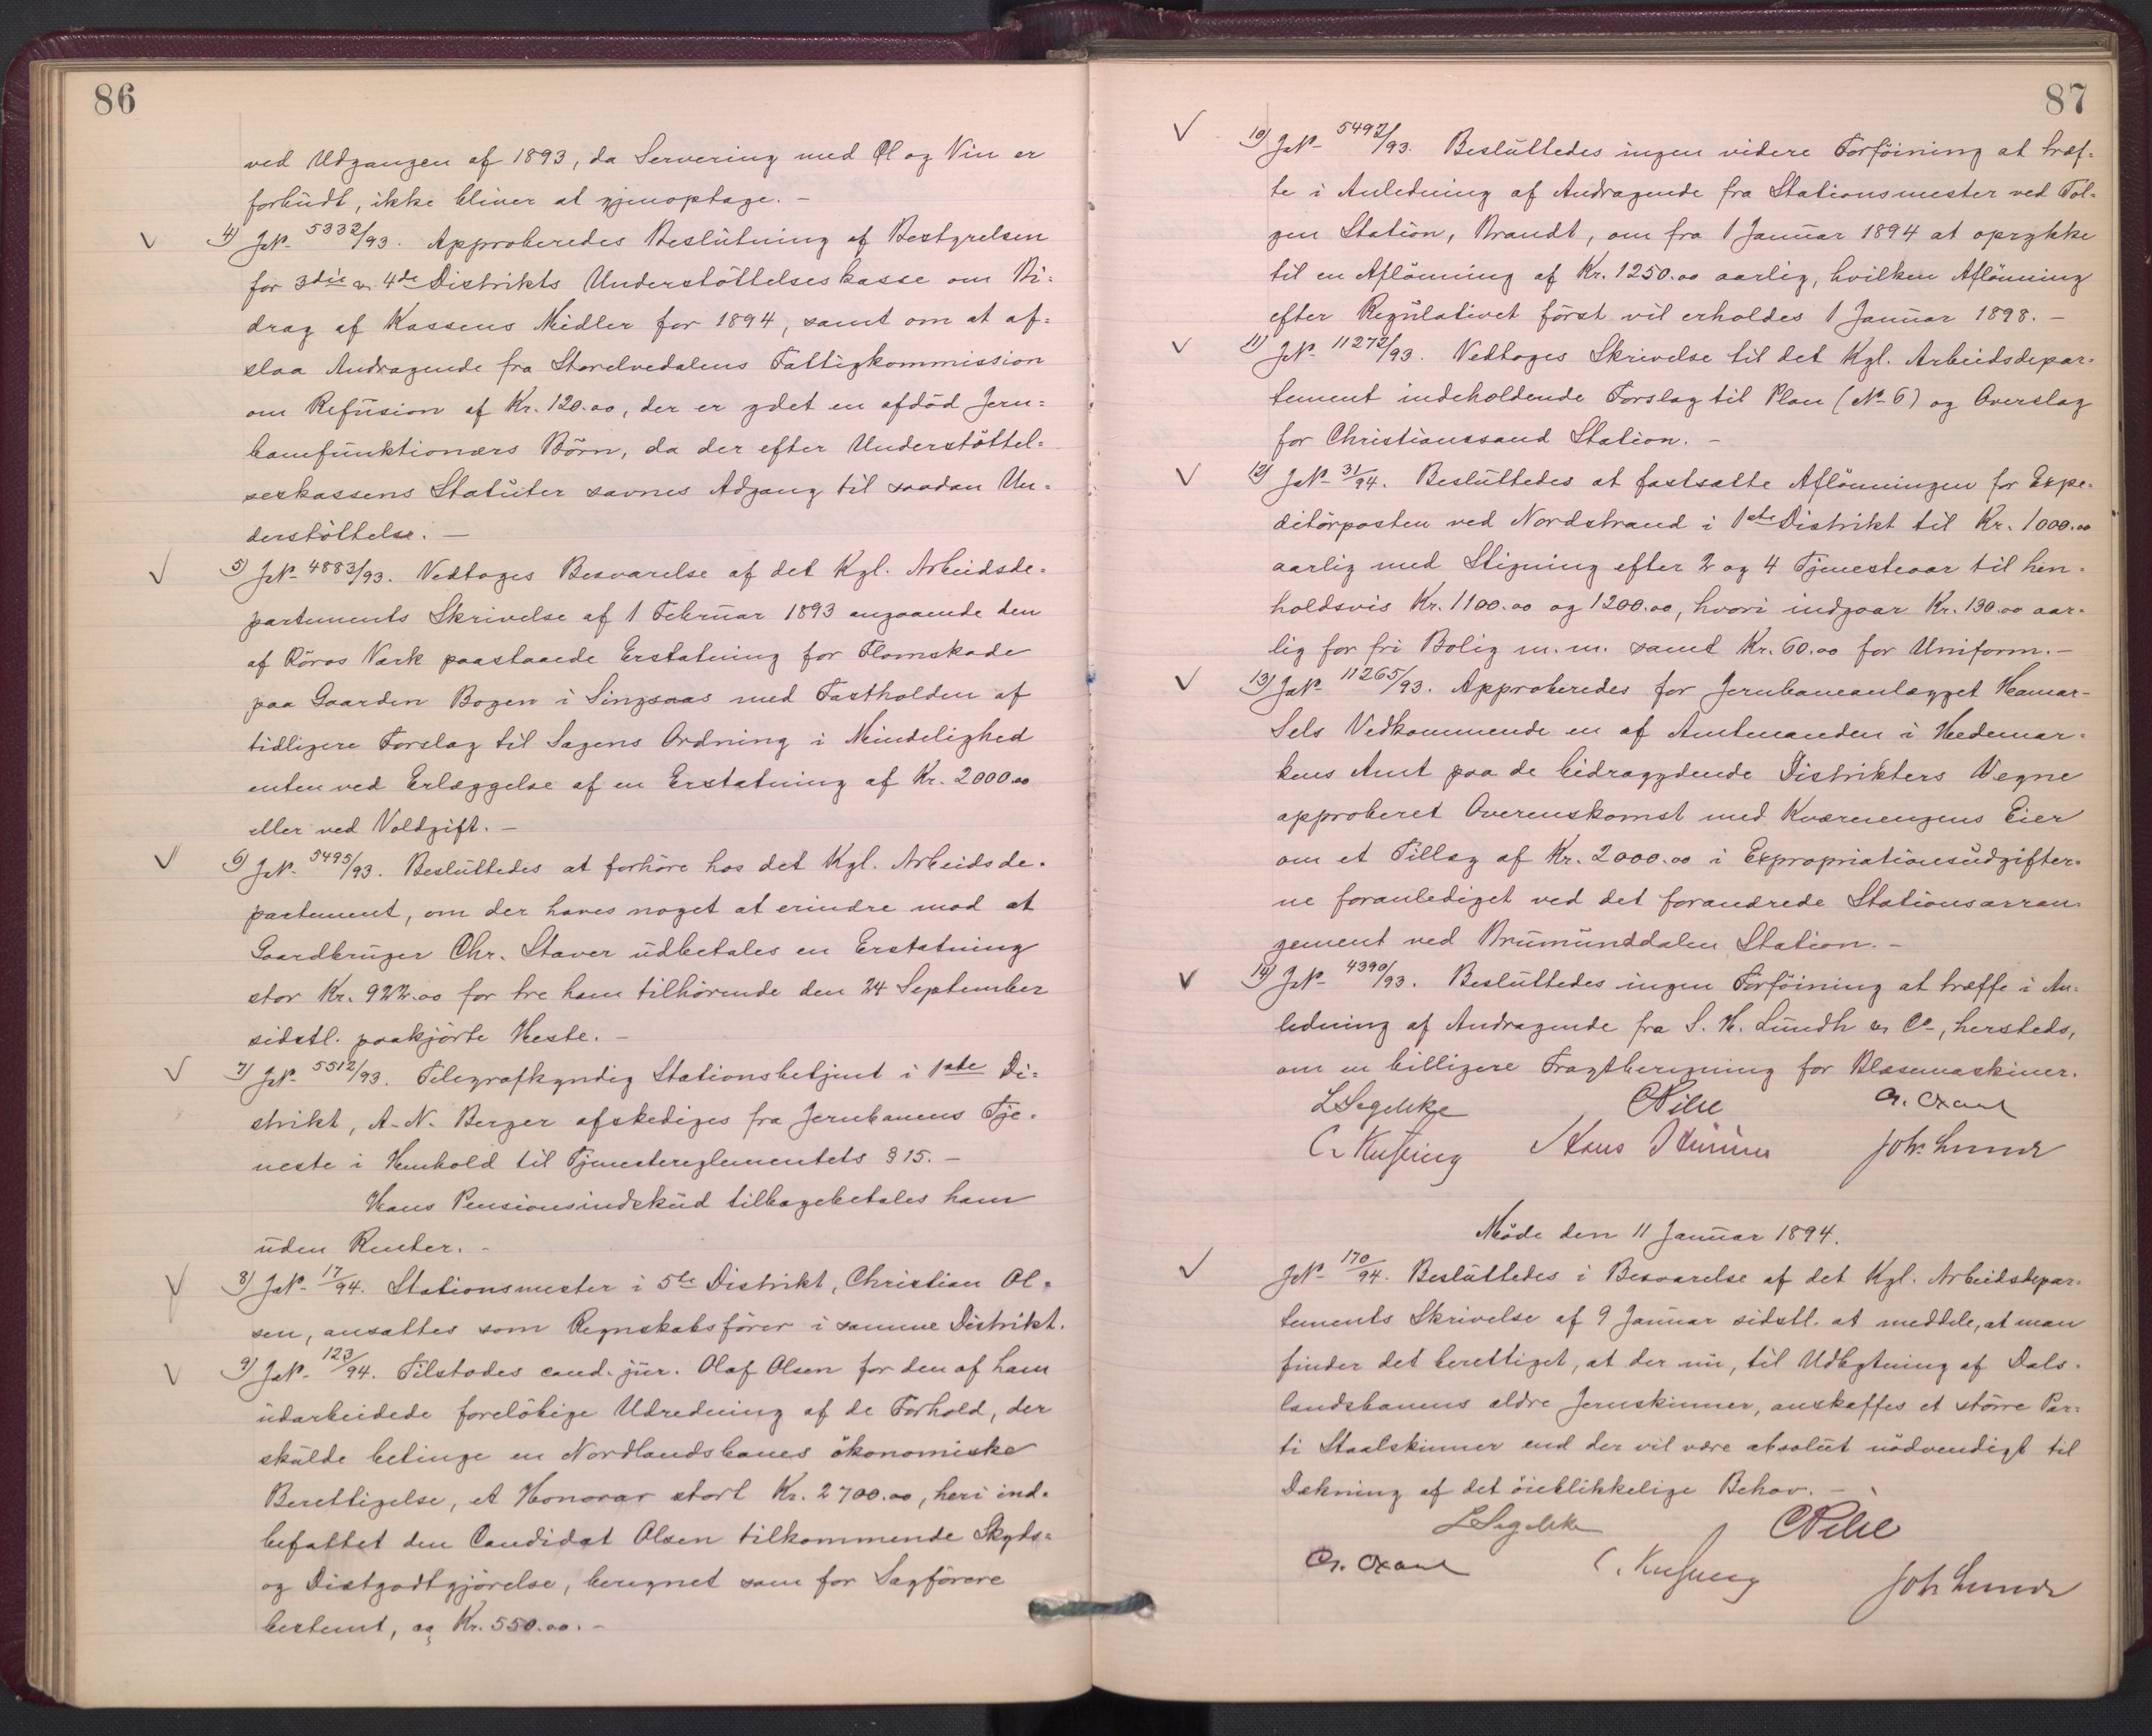 86
ved Udgangen af 1893, da Servering med Øl og Vin er
forbudt, ikke bliver at gjenoptage. –
4) J№ 5332/93. Approberedes Beslutning af Bestyrelsen
for 3die & 4de Distrikts Understöttelseskasse om Bi=
drag af Kassens Midler for 1894, samt om at af=
slaa Andragende fra Storelvedalens Fattigkommission
om Refusion af Kr. 120.00, der er ydet en afdöd Jern=
banefunktionærs Börn, da der efter Understöttel=
seskassens Statuter savnes Adgang til saadan Un=
derstöttelse. –
5) J№ 4883/93. Vedtoges Besvarelse af det Kgl. Arbeidsde=
partements Skrivelse af 1 Februar 1893 angaaende den
af Röros Værk paastaaede Erstatning for Flomskade
paa Gaarden Bogen i Singsaas med Fastholden af
tidligere Forslag til Sagens Ordning i Mindelighed
enten ved Erlæggelse af en Erstatning af Kr. 2000.00
eller ved Voldgift. –
6) J№ 5495/93. Besluttedes at forhöre hos det Kgl. Arbeidsde=
partement, om der haves noget at erindre mod at
Gaardbruger Chr. Staver udbetales en Erstatning
stor Kr. 922.00 for tre ham tilhörende den 24 September
sidstl. paakjörte Heste. –
7) J№ 5512/93. Telegrafkyndig Stationsbetjent i 1ste Di=
strikt, A. N. Berger afskediges fra Jernbanens Tje=
neste i Henhold til Tjenestereglementets § 15. –
Hans Pensionsindskud tilbagebetales ham
uden Renter. –
8) J№ 17/94. Stationsmester i 5te Distrikt, Christian Ol=
sen, ansattes som Regnskabsförer i samme Distrikt.
9) J№ 123/94. Tilstodes cand. jur. Olaf Olsen for den af ham
udarbeidede forelöbige Udredning af de Forhold, der
skulde betinge en Nordlandsbanes ökonomiske
Berettigelse, et Honorar stort Kr. 2700.00, heri ind=
befattet den Candidat Olsen tilkommende Skyds=
og Diætgodtgjörelse, beregnet som for Sagförere
bestemt, og Kr. 550.00. –
87
10) J№ 5492/93. Besluttedes ingen videre Forföining at træf=
fe i Anledning af Andragende fra Stationsmester ved Tol=
gen Station, Brandt, om fra 1 Januar 1894 at oprykke
til en Aflönning af Kr. 1250.00 aarlig, hvilken Aflönning
efter Regulativet först vil erholdes 1 Januar 1898. –
11) J№ 11272/93. Vedtoges Skrivelse til det Kgl. Arbeidsdepar=
tement indeholdende Forslag til Plan (№ 6) og Overslag
for Christianssand Station. –
12) J№ 31/94. Besluttedes at fastsatte Aflönningen for Expe=
ditörposten ved Nordstrand i 1ste Distrikt til Kr. 1000.00
aarlig med Stigning efter 2 og 4 Tjenesteaar til hen=
holdsvis Kr. 1100.00 og 1200.00, hvori indgaar Kr. 130.00 aar=
lig for fri Bolig m. m. samt Kr. 60.00 for Uniform. –
13) J№ 11265/93. Approberedes for Jernbaneanlægget Hamar-
Sels Vedkommende en af Amtmanden i Hedemar=
kens Amt paa de bidragydende Distrikters Vegne
approberet Overenskomst med Kværnengens Eier
om et Tillæg af Kr. 2000.00 i Expropriationsudgifter=
ne foranlediget ved det forandrede Stationsarran=
gement ved Brumunddalen Station. –
14) J№ 4390/93. Besluttedes ingen Forföining at træffe i An=
ledning af Andragende fra S. H. Lundh & Co, hersteds,
om en billigere Fragtberegning for Blæsemaskiner.
LSegelcke CPihl
Joh. Lund
Möde den 11 Januar 1894.
J№ 170/94. Besluttedes i Besvarelse af det Kgl. Arbeidsdepar=
tements Skrivelse af 9 Januar sidstl. at meddele, at man
finder det berettiget, at der nu, til Udbytning af Dals=
landsbanens ældre Jernskinner, anskaffes et större Par=
ti Staalskinner end der vil være absolut nödvendigt til
Dækning af det öieblikkelige Behov. –
LSegelcke CPihl
Joh Lund